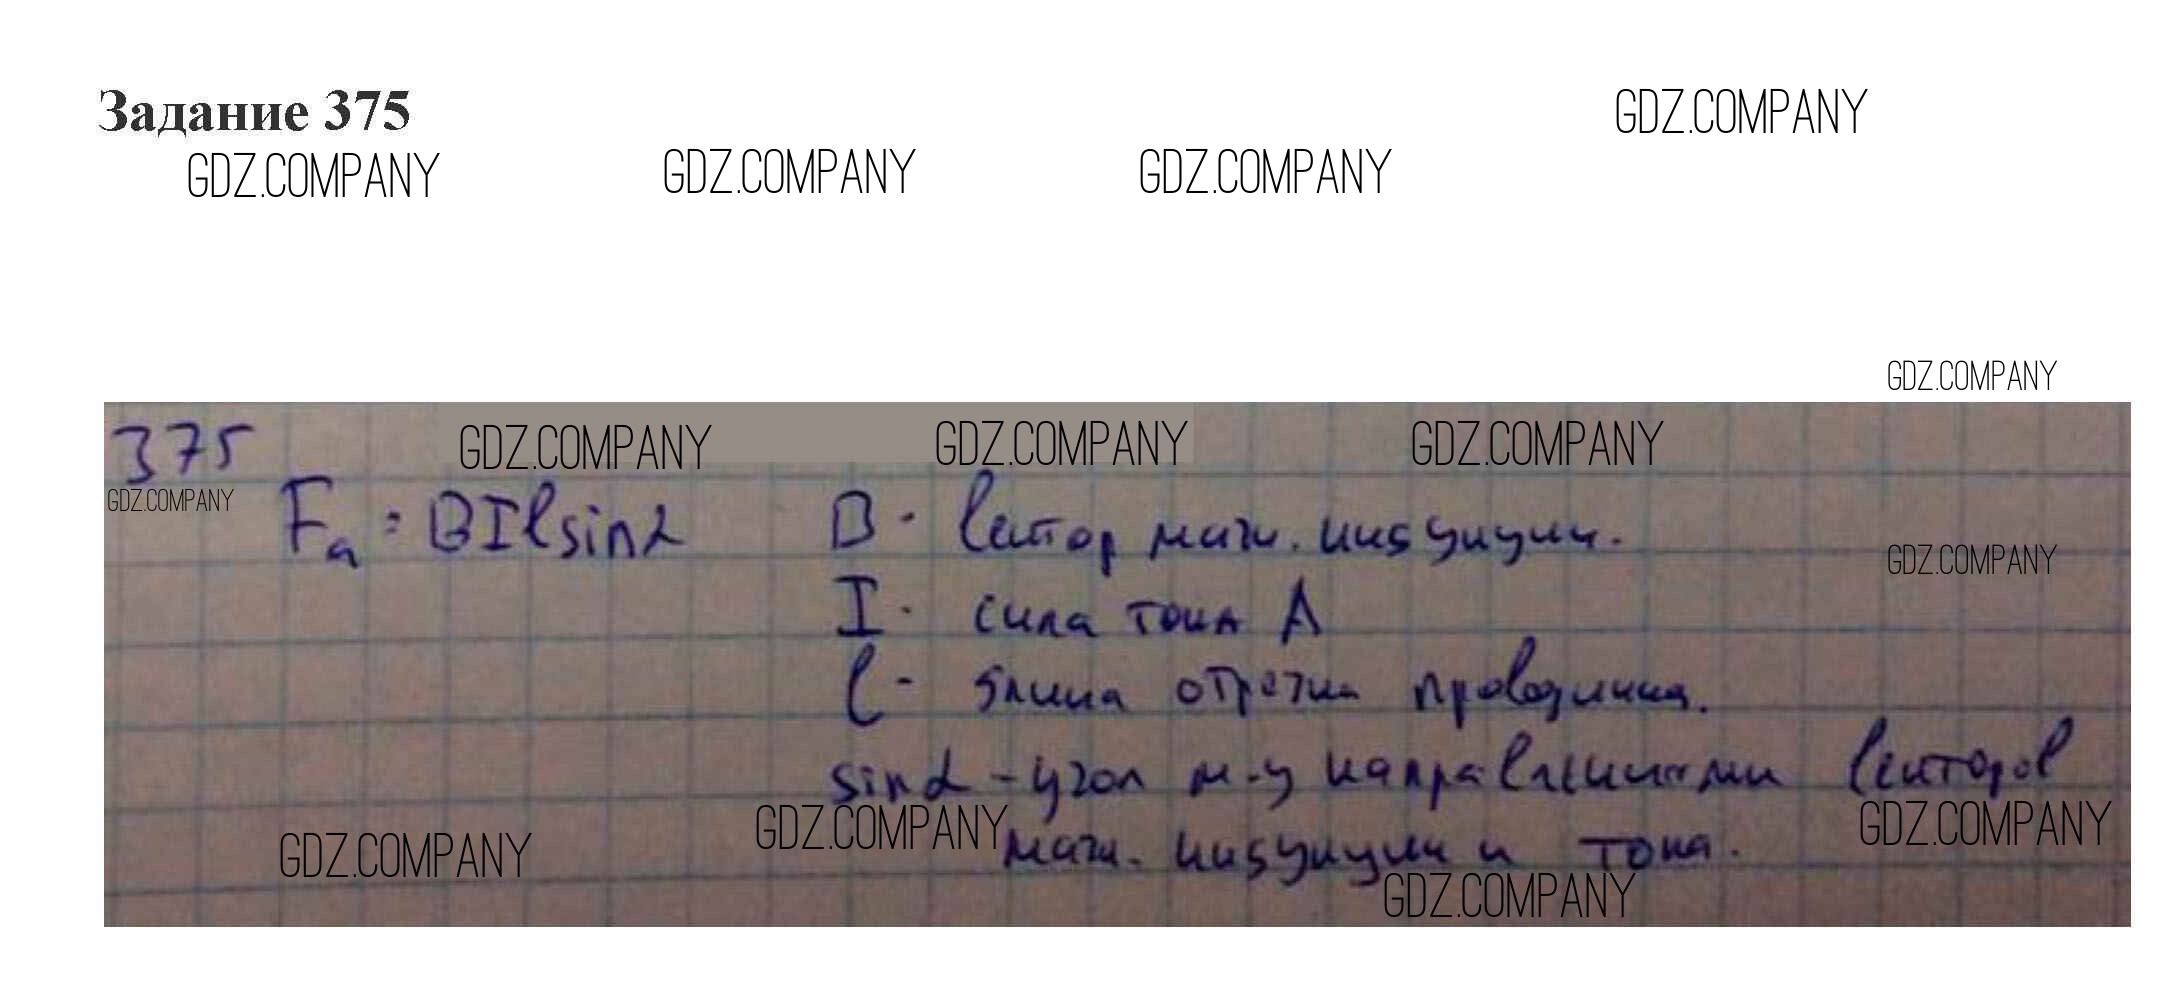 Задание 375
GDZ.COMPANY
GDZ.COMPANY GDZ.COMPANY GDZ.COMPANY
GDZ.COMPANY
375 GDZ.COMPANY GDZ.COMPANY GDZ.COMPANY
GDZ.COMPANY
Fа = BIlsinα B - вектор магн. индукции.
GDZ.COMPANY
I - сила тока А
l - длина отрезка проводника.
sinα - угол м-у направлениями векторов
GDZ.COMPANY GDZ.COMPANY GDZ.COMPANY
магн. индукции и тока.
GDZ.COMPANY